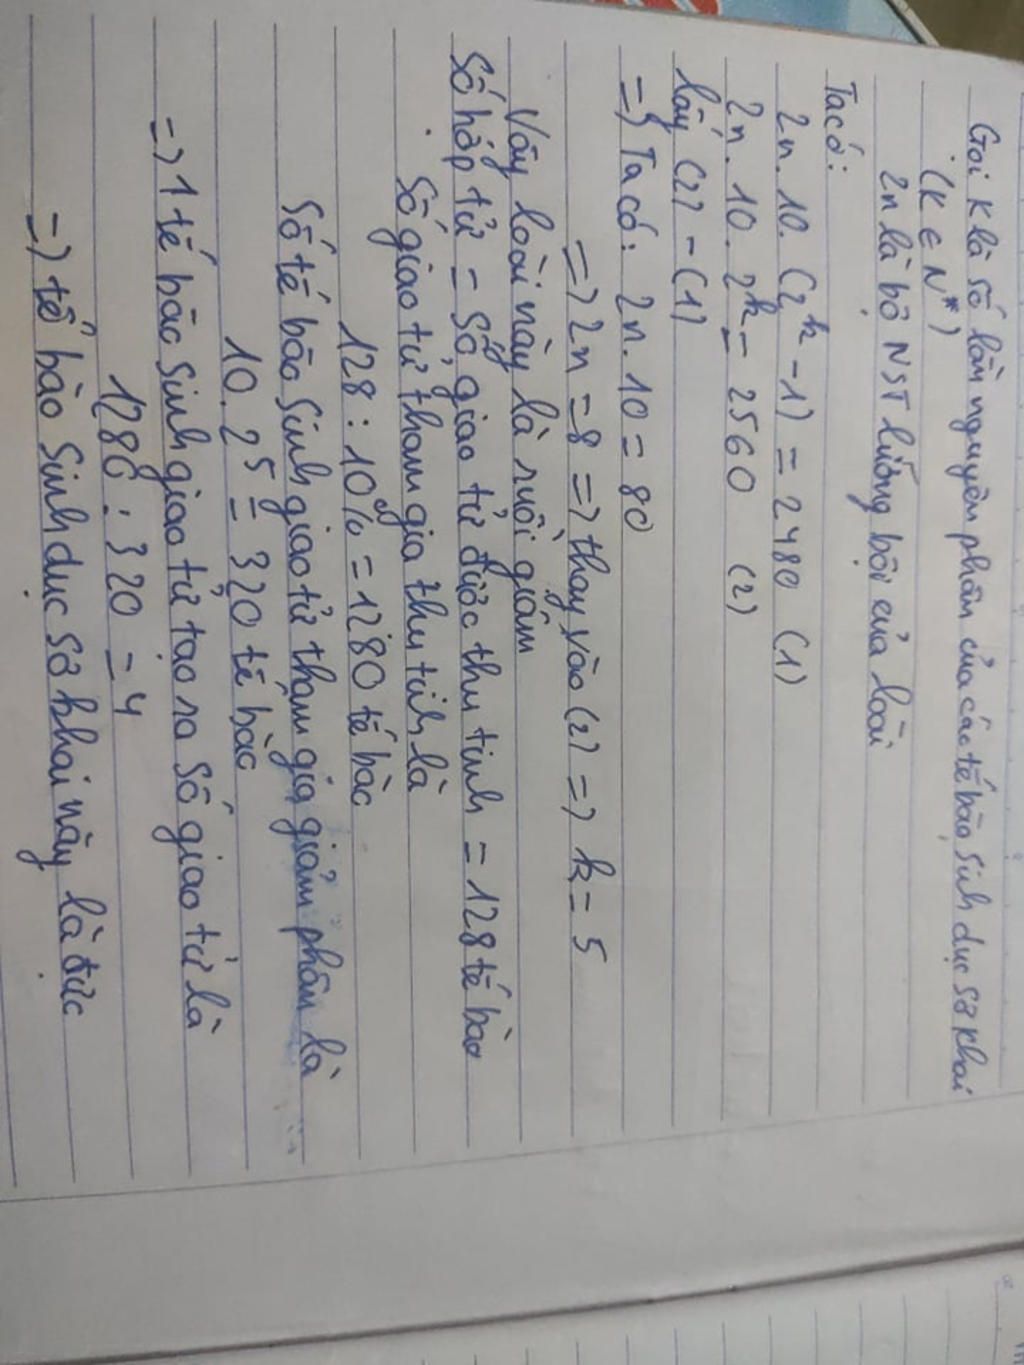 Gọi K là số lần nguyên phân của các tế bào sinh dục sơ khai
(K ∈ N*)
2n là bộ NST lưỡng bội của loài
Ta có:
2n. 10. (2^k - 1) = 2480 (1)
2n. 10. 2^k = 2560 (2)
lấy (2) - (1)
=> Ta có: 2n. 10 = 80
=> 2n = 8 => thay vào (2) => k = 5
Vậy loài này là ruồi giấm
Số hợp tử = số giao tử được thụ tinh = 128 tế bào
Số giao tử tham gia thụ tinh là
128 : 10% = 1280 tế bào
Số tế bào sinh giao tử tham gia giảm phân là
10. 2^5 = 320 tế bào
=> 1 tế bào sinh giao tử tạo ra số giao tử là
1280 : 320 = 4
=> tế bào sinh dục sơ khai này là đực